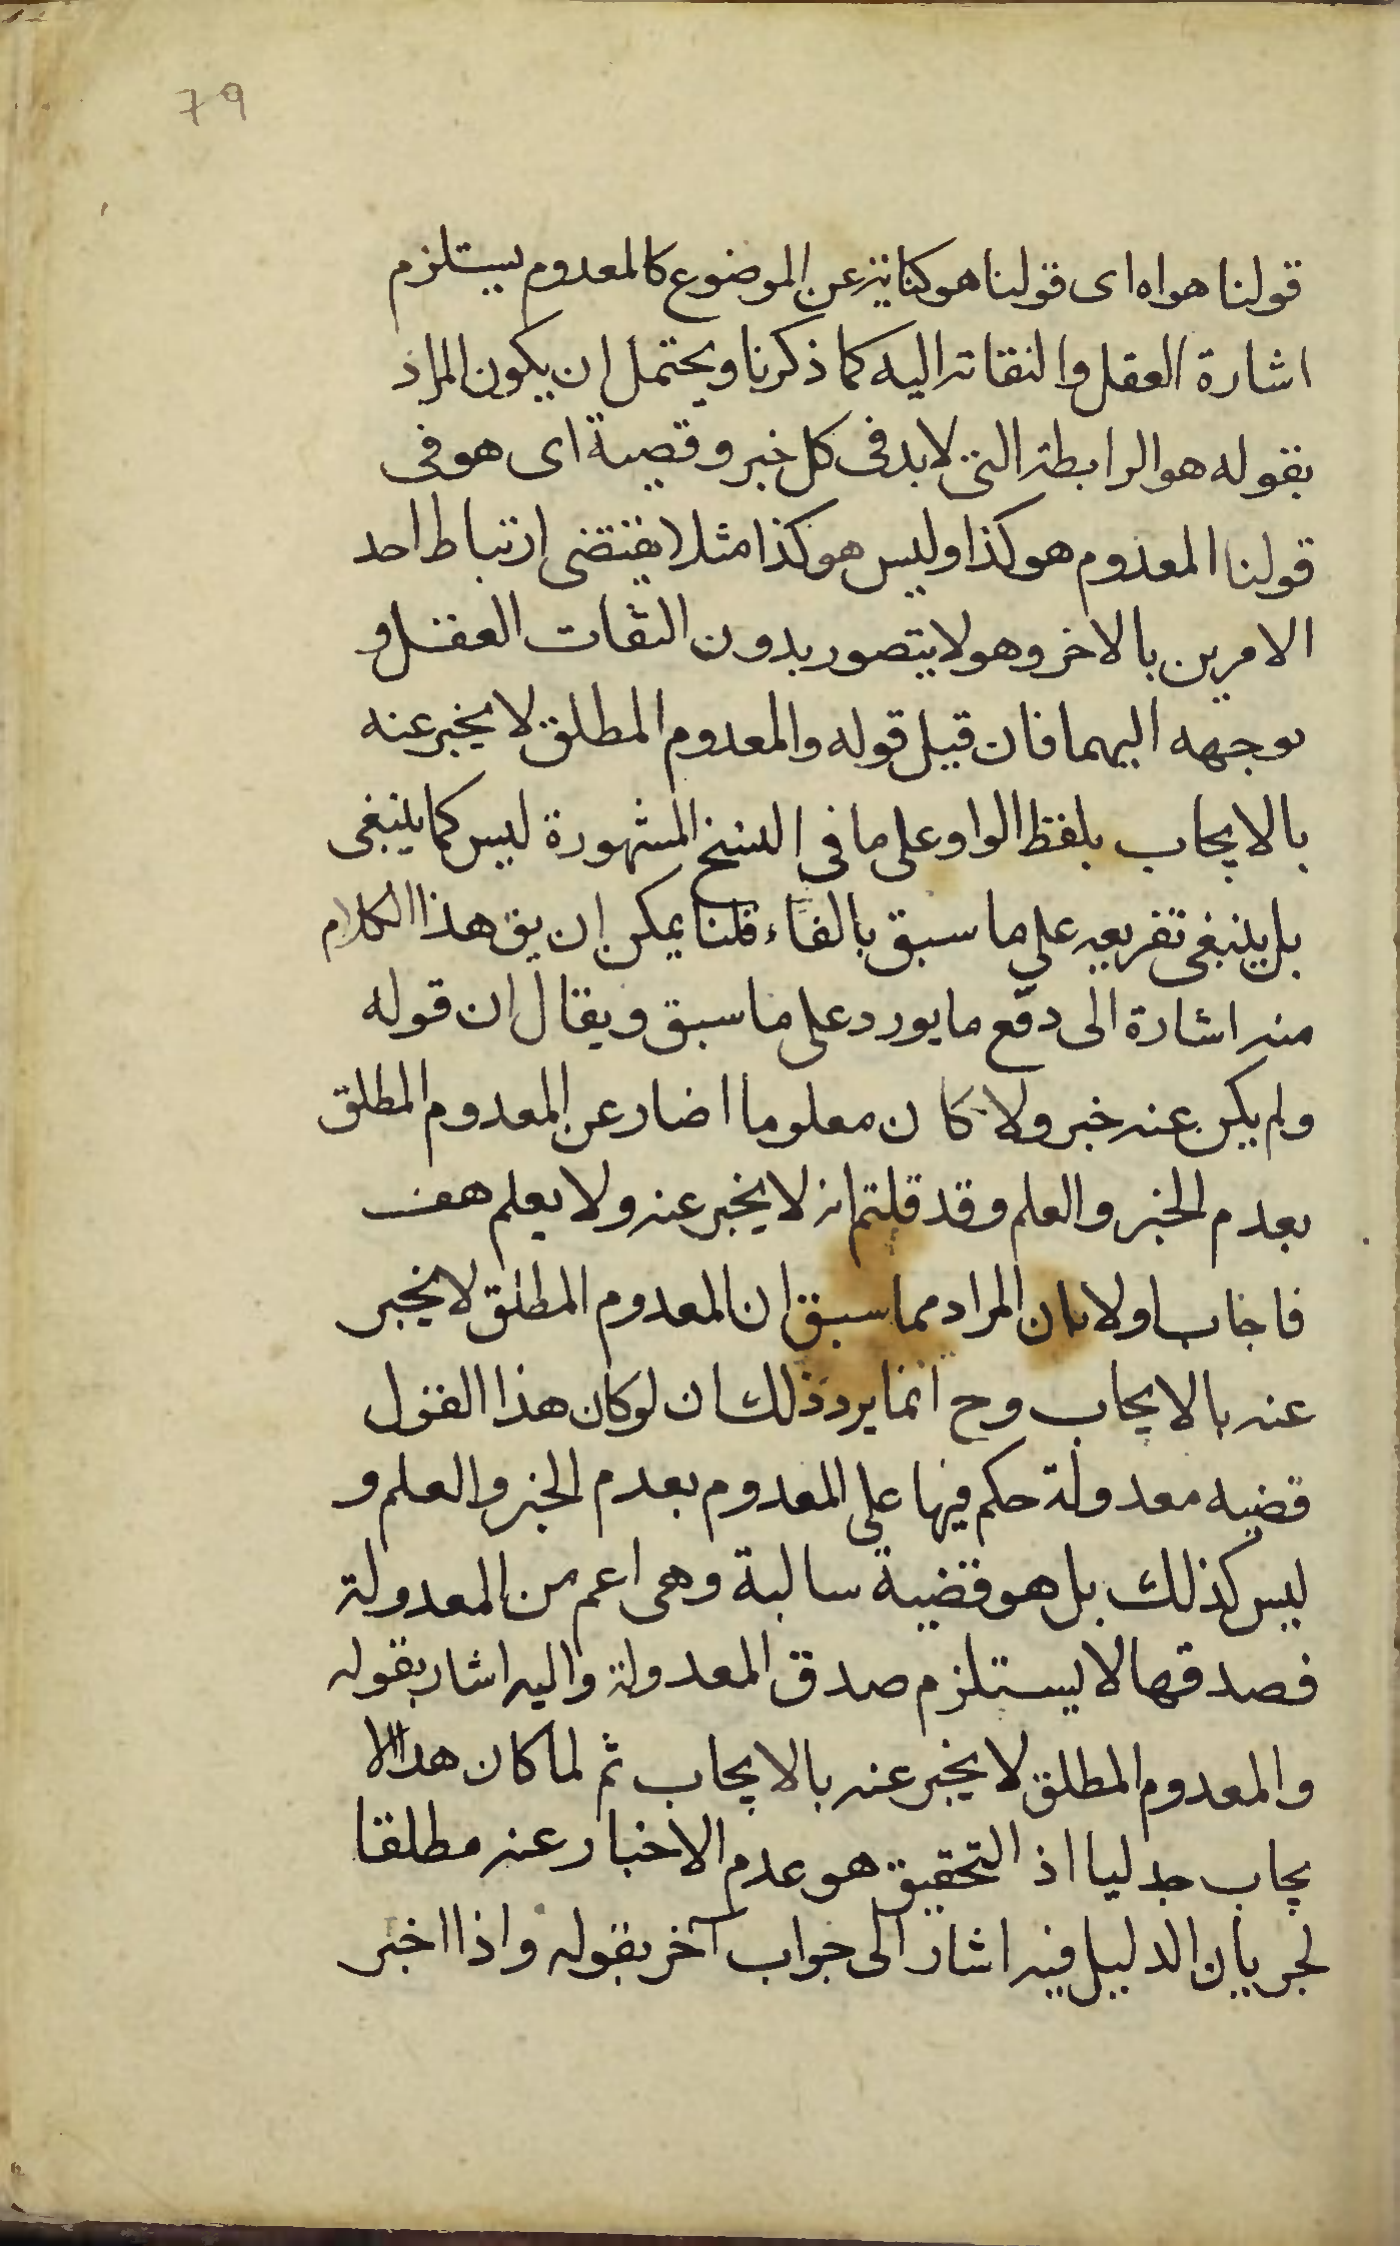 79
قولنا هو اه اى قولنا هو كناية عن الموضوع كالمعدوم يستلزم
اشارة العقل والتفاته اليه كما ذكرنا ويحتمل ان يكون المراد
بقوله هو الرابطة التى لابد فى كل خبر وقضية اى هو فى
قولنا المعدوم هو كذا وليس هو كذا مثلا يقتضى ارتباط احد
الامرين بالاخر وهو لا يتصور بدون التفات العقل و
توجهه اليهما فان قيل قوله والمعدوم المطلق لا يخبر عنه
بالايجاب بلفظ الواو على ما فى النسخ المشهورة ليس كما ينبغى
بل ينبغى تفريعه على ما سبق بالفاء قلنا يمكن ان يق هذا الكلام
منه اشارة الى دفع ما يورد على ما سبق ويقال ان قوله
ولم يكن عنه خبر ولا كان معلوما اخبار عن المعدوم المطلق
بعدم الخبر والعلم وقد قلتم انه لا يخبر عنه ولا يعلم هف
فاجاب اولا بان المراد مما سبق ان المعدوم المطلق لا يخبر
عنه بالايجاب وح انما يرد ذلك ان لو كان هذا القول
قضيه معدولة حكم فيها على المعدوم بعدم الخبر والعلم و
ليس كذلك بل هو قضية سالبة وهى اعم من المعدولة
فصدقها لا يستلزم صدق المعدولة واليه اشار بقوله
والمعدوم المطلق لا يخبر عنه بالايجاب ثم لما كان هذا الا
يجاب جدليا اذ التحقيق هو عدم الاخبار عنه مطلقا
لجريان الدليل فيه اشار الى جواب آخر بقوله واذا اخبر